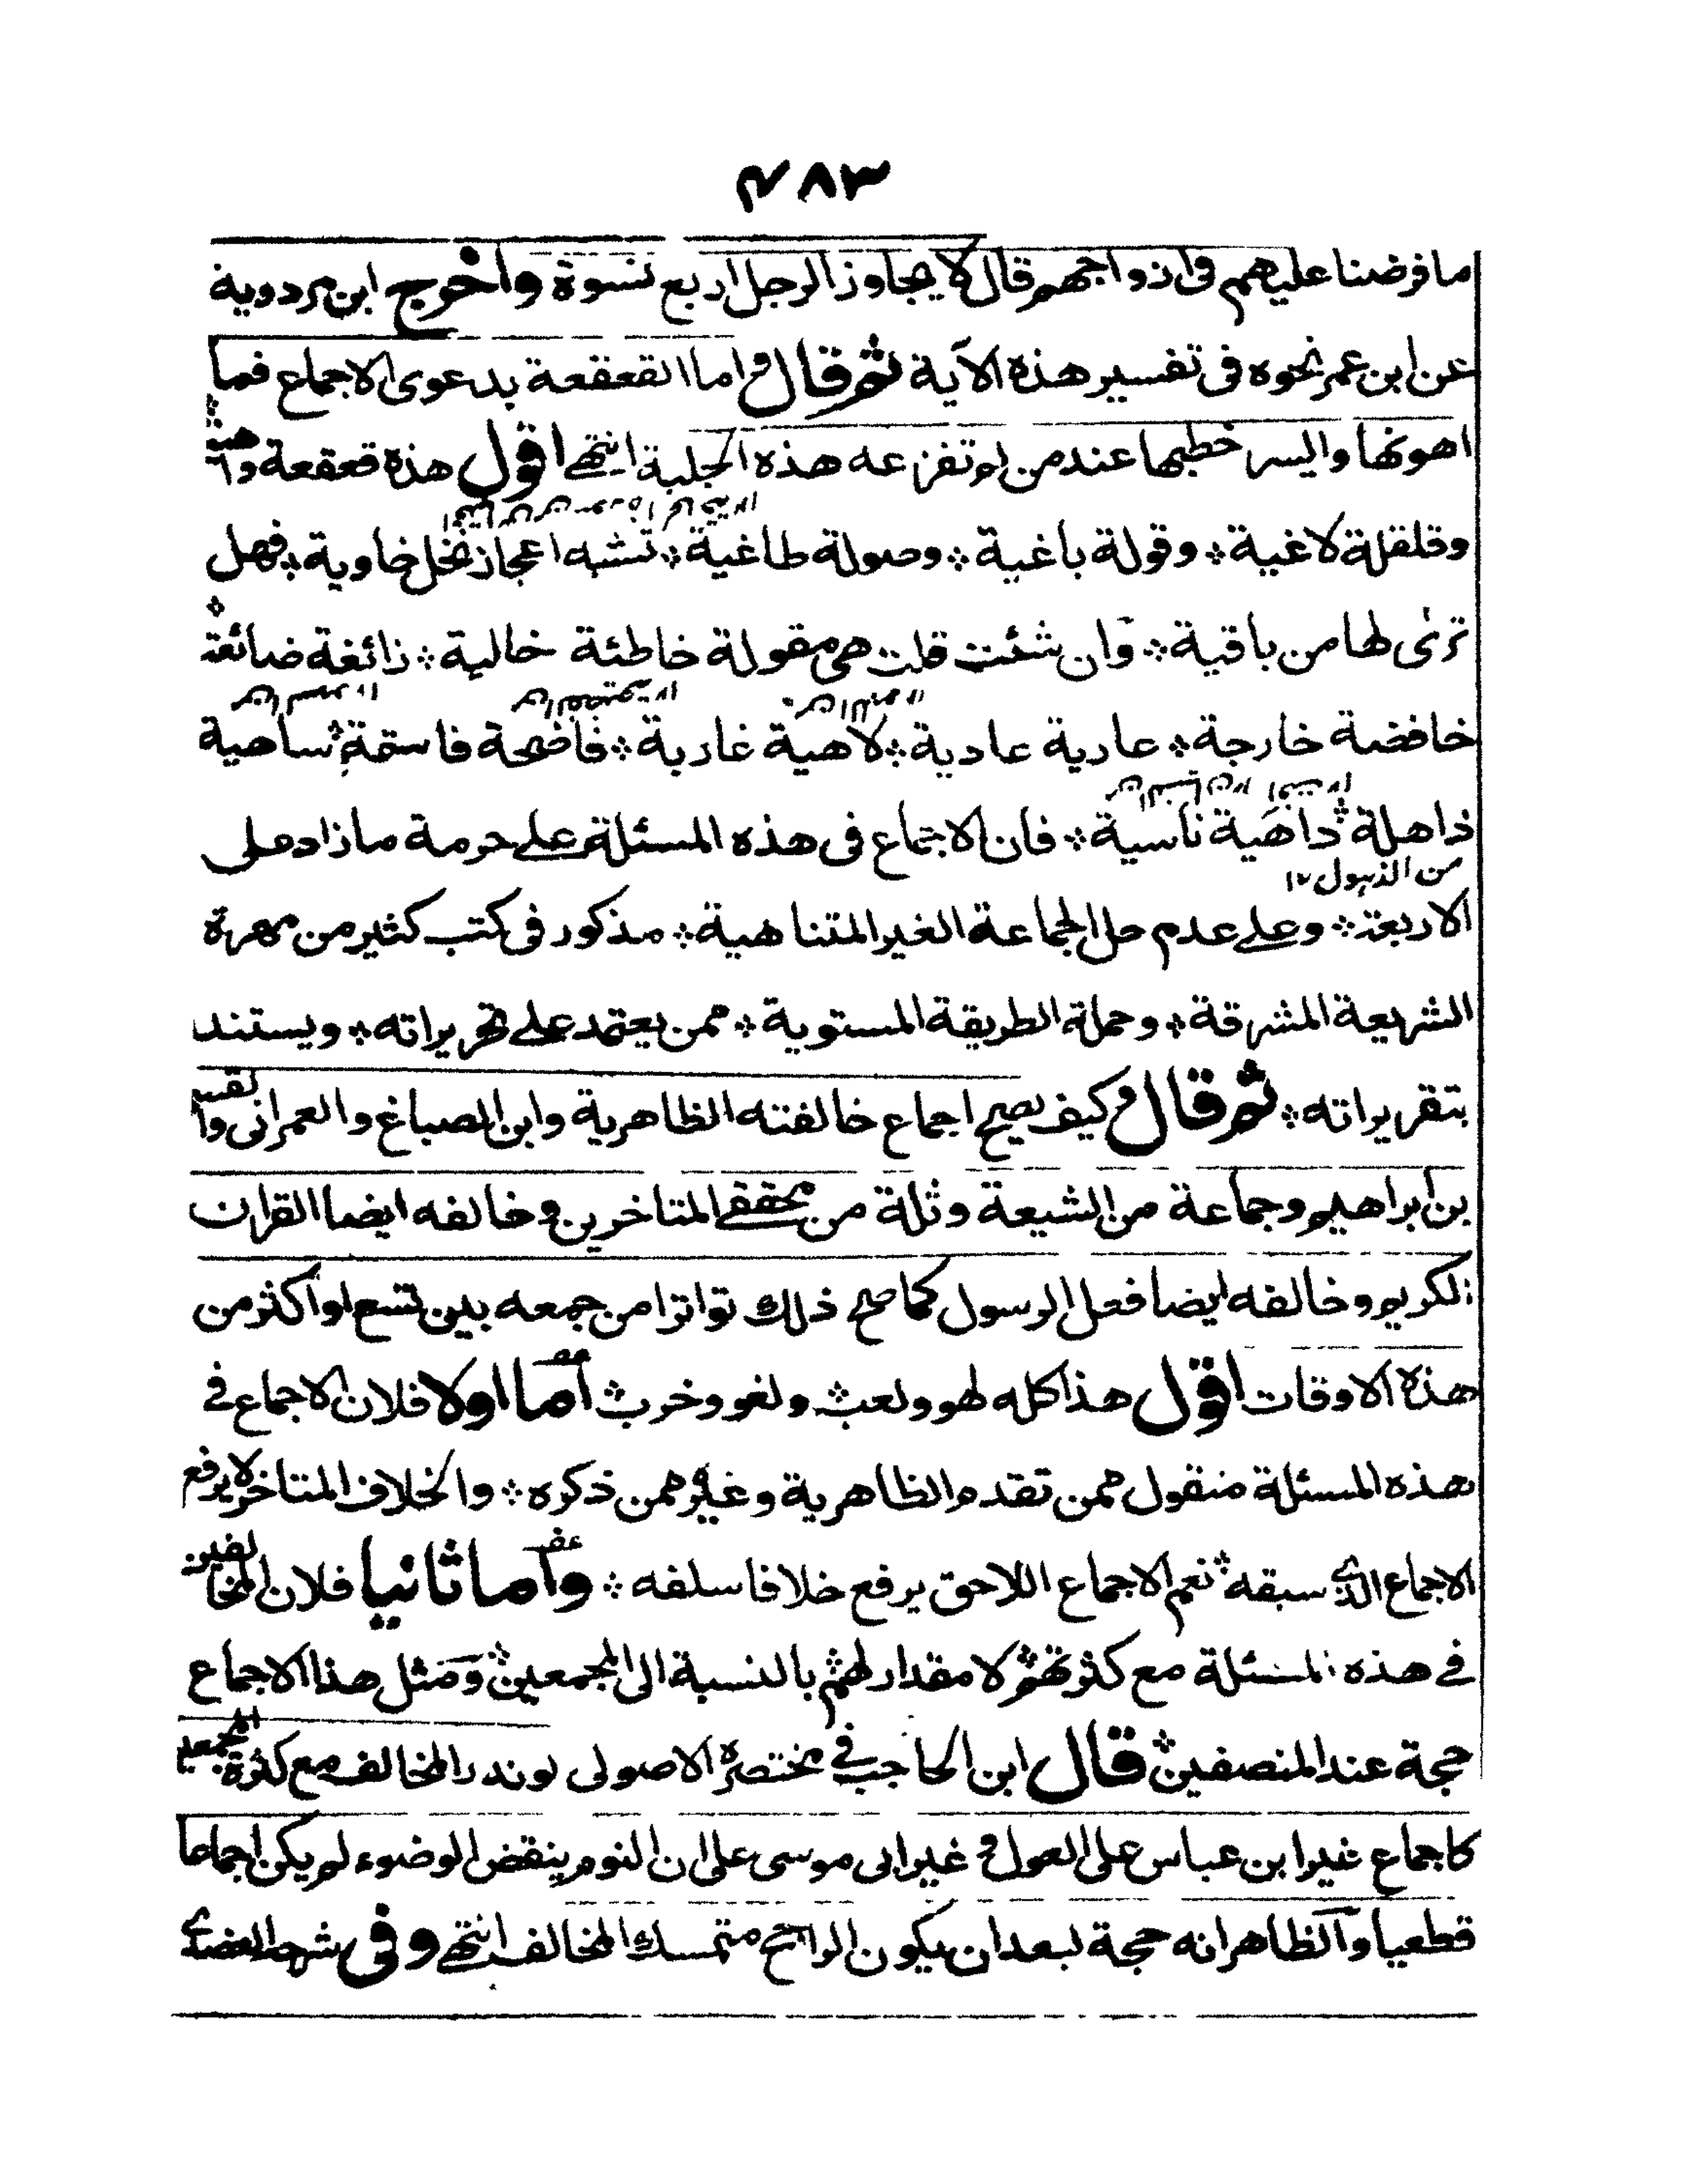 ٤٨٣
ما فرضنا عليهم فى ازواجهم قال لا يجاوز الرجل اربع نسوة واخرج ابن مردوية
عن ابن عمر نحوه فى تفسير هذه الآية ثم قال واما القعقعة بدعوى الاجماع فما
اهونها وايسر خطبها عند من لم تفزعه هذه الجلبة انتهى اقول هذه قعقعة واهية
وقلقلة لاغية ※ وقولة باغية ※ وصولة طاغية ※ تشبه اعجاز نخل خاوية ※ فهل
ترى لها من باقية ※ وان شئت قلت هى مقولة خاطئة خالية ※ زائغة ضائعة ※
خافضة خارجة ※ عارية عادية ※ لاهية غاربة ※ فاضحة فاسقة ※ ساهية
ذاهلة ※ داهية ناسية ※ فان الاجماع فى هذه المسئلة على حرمة ما زاد على
من الذهول ١٢
الاربعة ※ وعلى عدم حل الجماعة الغير المتناهية ※ مذكور فى كتب كثير من مهرة
الشريعة المشرقة ※ وحملة الطريقة المستوية ※ ممن يعتمد على تحريراته ※ ويستند
بتقريراته ※ ثم قال وكيف يصح اجماع خالفته الظاهرية وابن الصباغ والعمرانى والقسيم
بن ابراهيم وجماعة من الشيعة وثلة من محققے المتاخرين و خالفه ايضا القران
الكريم وخالفه ايضا فعل الرسول كما صح ذلك تواترا من جمعه بين تسع او اكثر من
هذه الاوقات اقول هذا كله لهو ولعب ※ ولغو وخرب ※ اما اولا فلان الاجماع فے
هذه المسئلة منقول ممن تقدم الظاهرية وغيرهم ممن ذكره ※ والخلاف المتاخر لا يرفع
الاجماع الذى سبقه ※ نعم الاجماع اللاحق يرفع خلافا سلفه ※ واما ثانيا فلان المخالفين
فے هذه المسئلة مع كثرتهم ※ لا مقدار لهم ※ بالنسبة الى المجمعين ※ ومثل هذا الاجماع
حجة عند المنصفين ※ قال ابن الحاجب فے مختصره الاصولى لو ندر المخالف مع كثرة المجمعين
كاجماع غير ابن عباس على العول و غير ابى موسى على ان النوم ينقض الوضوء لم يكن اجماعا
قطعيا والظاهر انه حجة لبعد ان يكون الراجح متمسك المخالف انتهى وفى شرحه العضدى